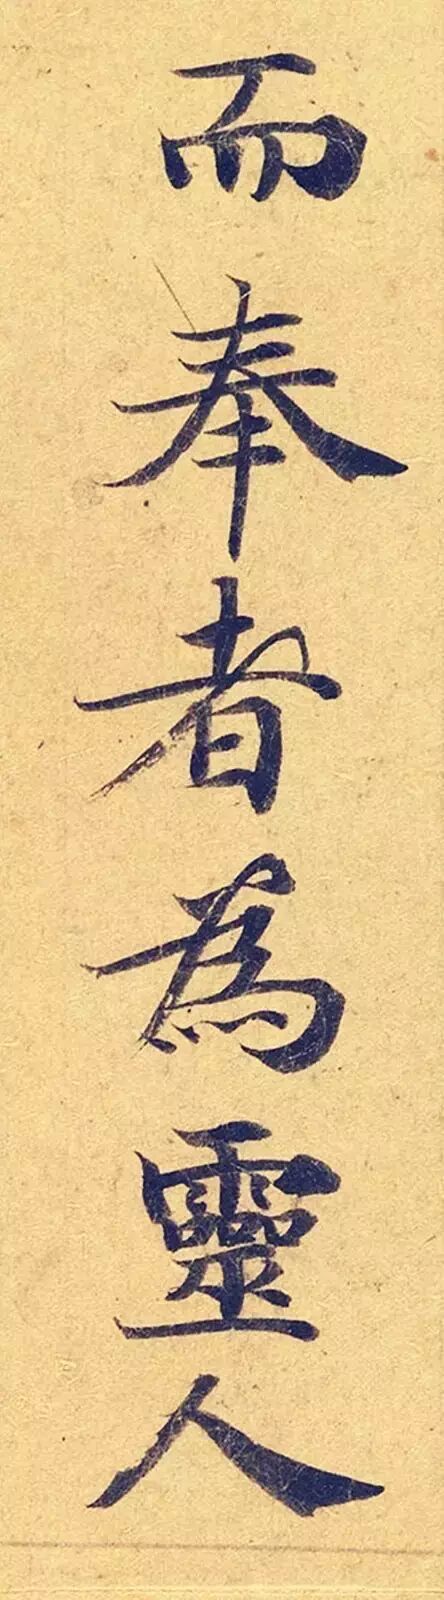 而奉者為靈人